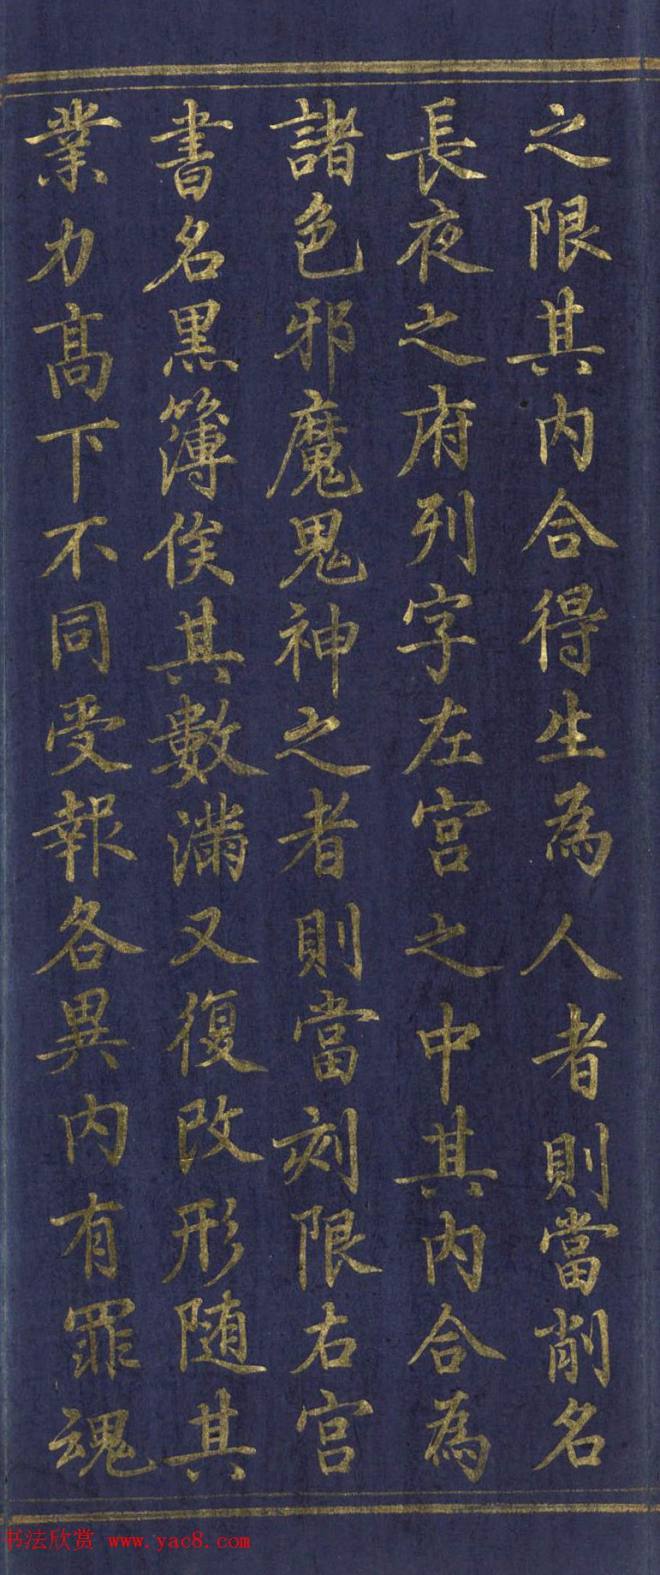 之限其内合得生為人者則當削名
長夜之府列字左宫之中其内合為
諸色邪魔鬼神之者則當刻限右宫
書名黒簿俟其數滿又復改形随其
業力髙下不同受報各異内有罪魂
书法欣赏 www.yac8.com